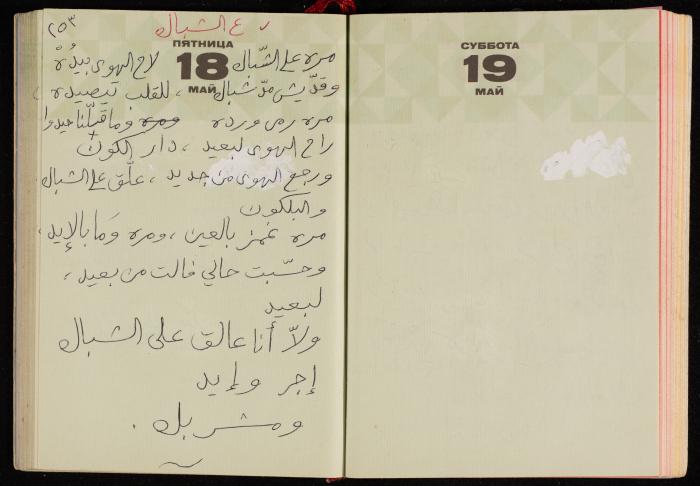 ٢٥٣
ع الشباك
ПЯТНИЦА
18
МАЙ
مره على الشّباك لاح الهوى بيدُهْ
وقدّيش مدّ شباك، للقلب تيصيده،
مره رمى ورده ومره وما قبلنا حيدوا
راح الهوى لبعيد، دار الكون
ورجع الهوى من جديد، علّق على الشباك
والبلكون
مره غمز بالعين، ومره وَمَا بالإيد،
وحسّبت حالي فالت من بعيد،
لبعيد
ولاّ أنا عالق على الشباك
إجر وإيد
ومشربك.
СУББОТА
19
МАЙ